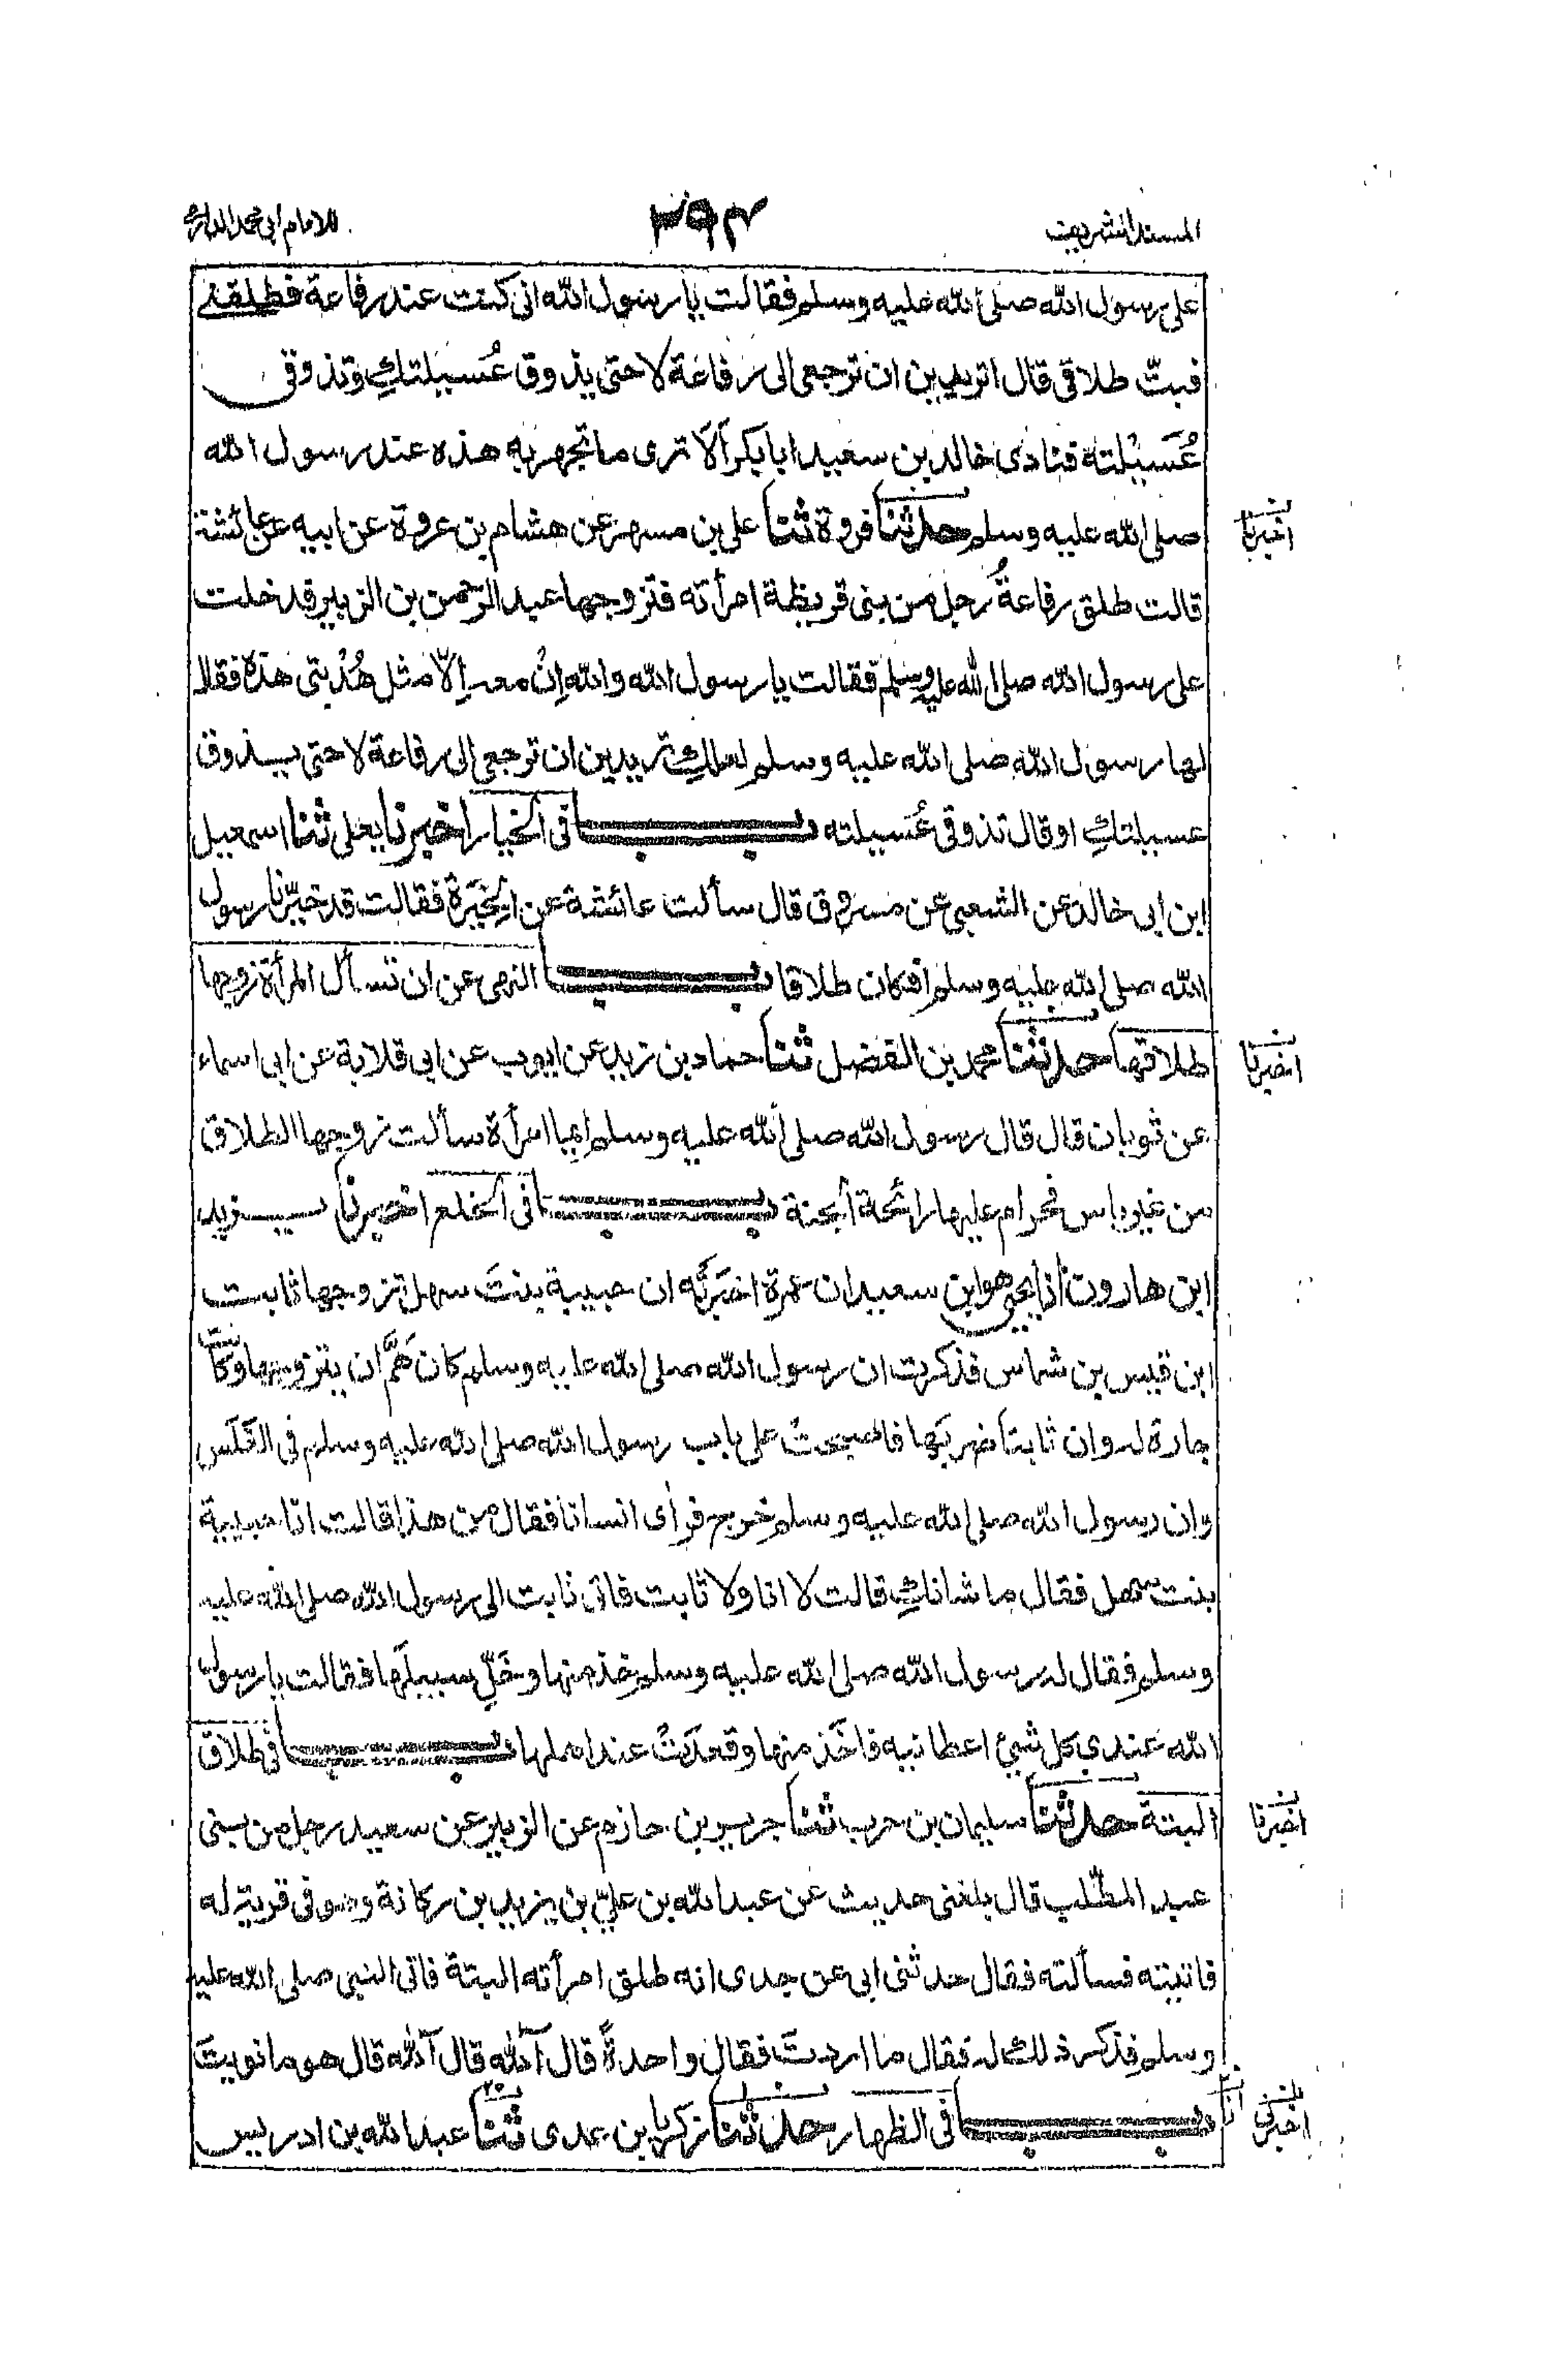 المسند الشريف
٢٩٣
للامام ابى محمد الدارمى
على رسول الله صلى الله عليه وسلم فقالت يا رسول الله انى كنت عند رفاعة فطلقنى
فبتّ طلاقى قال اتريدين ان ترجعى الى رفاعة لا حتى يذوق عُسَيلتكِ وتذوقى
عُسَيْلته فنادى خالد بن سعيد ابا بكر اَلَا ترى ما تجهر به هذه عند رسول الله
صلى الله عليه وسلم حدثنا فروة ثنا على بن مسهر عن هشام بن عروة عن ابيه عن عائشة
اخبرنا
قالت طلق رفاعةُ رجل من بنى قريظة امرأته فتزوجها عبد الرحمن بن الزبير فدخلت
على رسول الله صلى الله عليه وسلم فقالت يا رسول الله والله اِنْ معه اِلّا مثل هُدْبتى هذه فقال
لها رسول الله صلى الله عليه وسلم لعلكِ تريدين ان ترجعى الى رفاعة لا حتى يذوق
عسيلتكِ او قال تذوقى عُسيلته باب فى الخيار اخبرنا يعلى ثنا اسمعيل
ابن ابى خالد عن الشعبى عن مسروق قال سألت عائشة عن الخِيَرَة فقالت قد خيّرنا رسول
الله صلى الله عليه وسلم افكان طلاقا باب النهى عن ان تسأل المرأة زوجها
طلاقها حدثنا محمد بن الفضل ثنا حماد بن زيد عن ايوب عن ابى قلابة عن ابى اسماء
اخبرنا
عن ثوبان قال قال رسول الله صلى الله عليه وسلم ايما امرأة سألت زوجها الطلاق
من غير باس فحرام عليها رائحة الجنة باب فى الخلع اخبرنا يزيد
ابن هارون انا يحيى هو ابن سعيد ان عمرة اخبَرَتْه ان حبيبة بنت سهل تزوجها ثابت
ابن قيس بن شماس فذكرت ان رسول الله صلى الله عليه وسلم كان هَمَّ ان يتزوجها وكانت
جارة له وان ثابتاً ضربَها فاصبحتْ على باب رسول الله صلى الله عليه وسلم فى الغَلَس
وان رسول الله صلى الله عليه وسلم خرج فرأى انسانا فقال من هذا قالت انا حبيبة
بنت سهل فقال ما شانكِ قالت لا انا ولا ثابت فاتى ثابت الى رسول الله صلى الله عليه
وسلم فقال له رسول الله صلى الله عليه وسلم خذ منها وخَلِّ سبيلَها فقالت يا رسول
الله عندى كل شىئ اعطانيه فاخَذ منها وقعدَتْ عند اهلها باب فى طلاق
البتة حدثنا سليمان بن حرب ثنا جرير بن حازم عن الزبير عن سعيد رجل من بنى
اخبرنا
عبد المطّلب قال بلغنى حديث عن عبد الله بن علىّ بن يزيد بن ركانة وهو فى قرية له
فاتيته فسألته فقال حدثنى ابى عن جدى انه طلق امرأته البتة فاتى النبى صلى الله عليه
وسلم فذكر ذلك له فقال ما اردتَ فقال واحدةً قال آلله قال آلله قال هو ما نويتَ
باب فى الظهار حدثنا زكريا بن عدى ثنا عبد الله بن ادريس
انا
اخبرنى